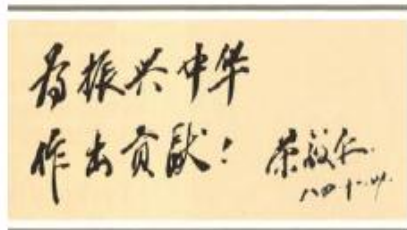 为振兴中华
作出贡献！
荣毅仁
八四·十·